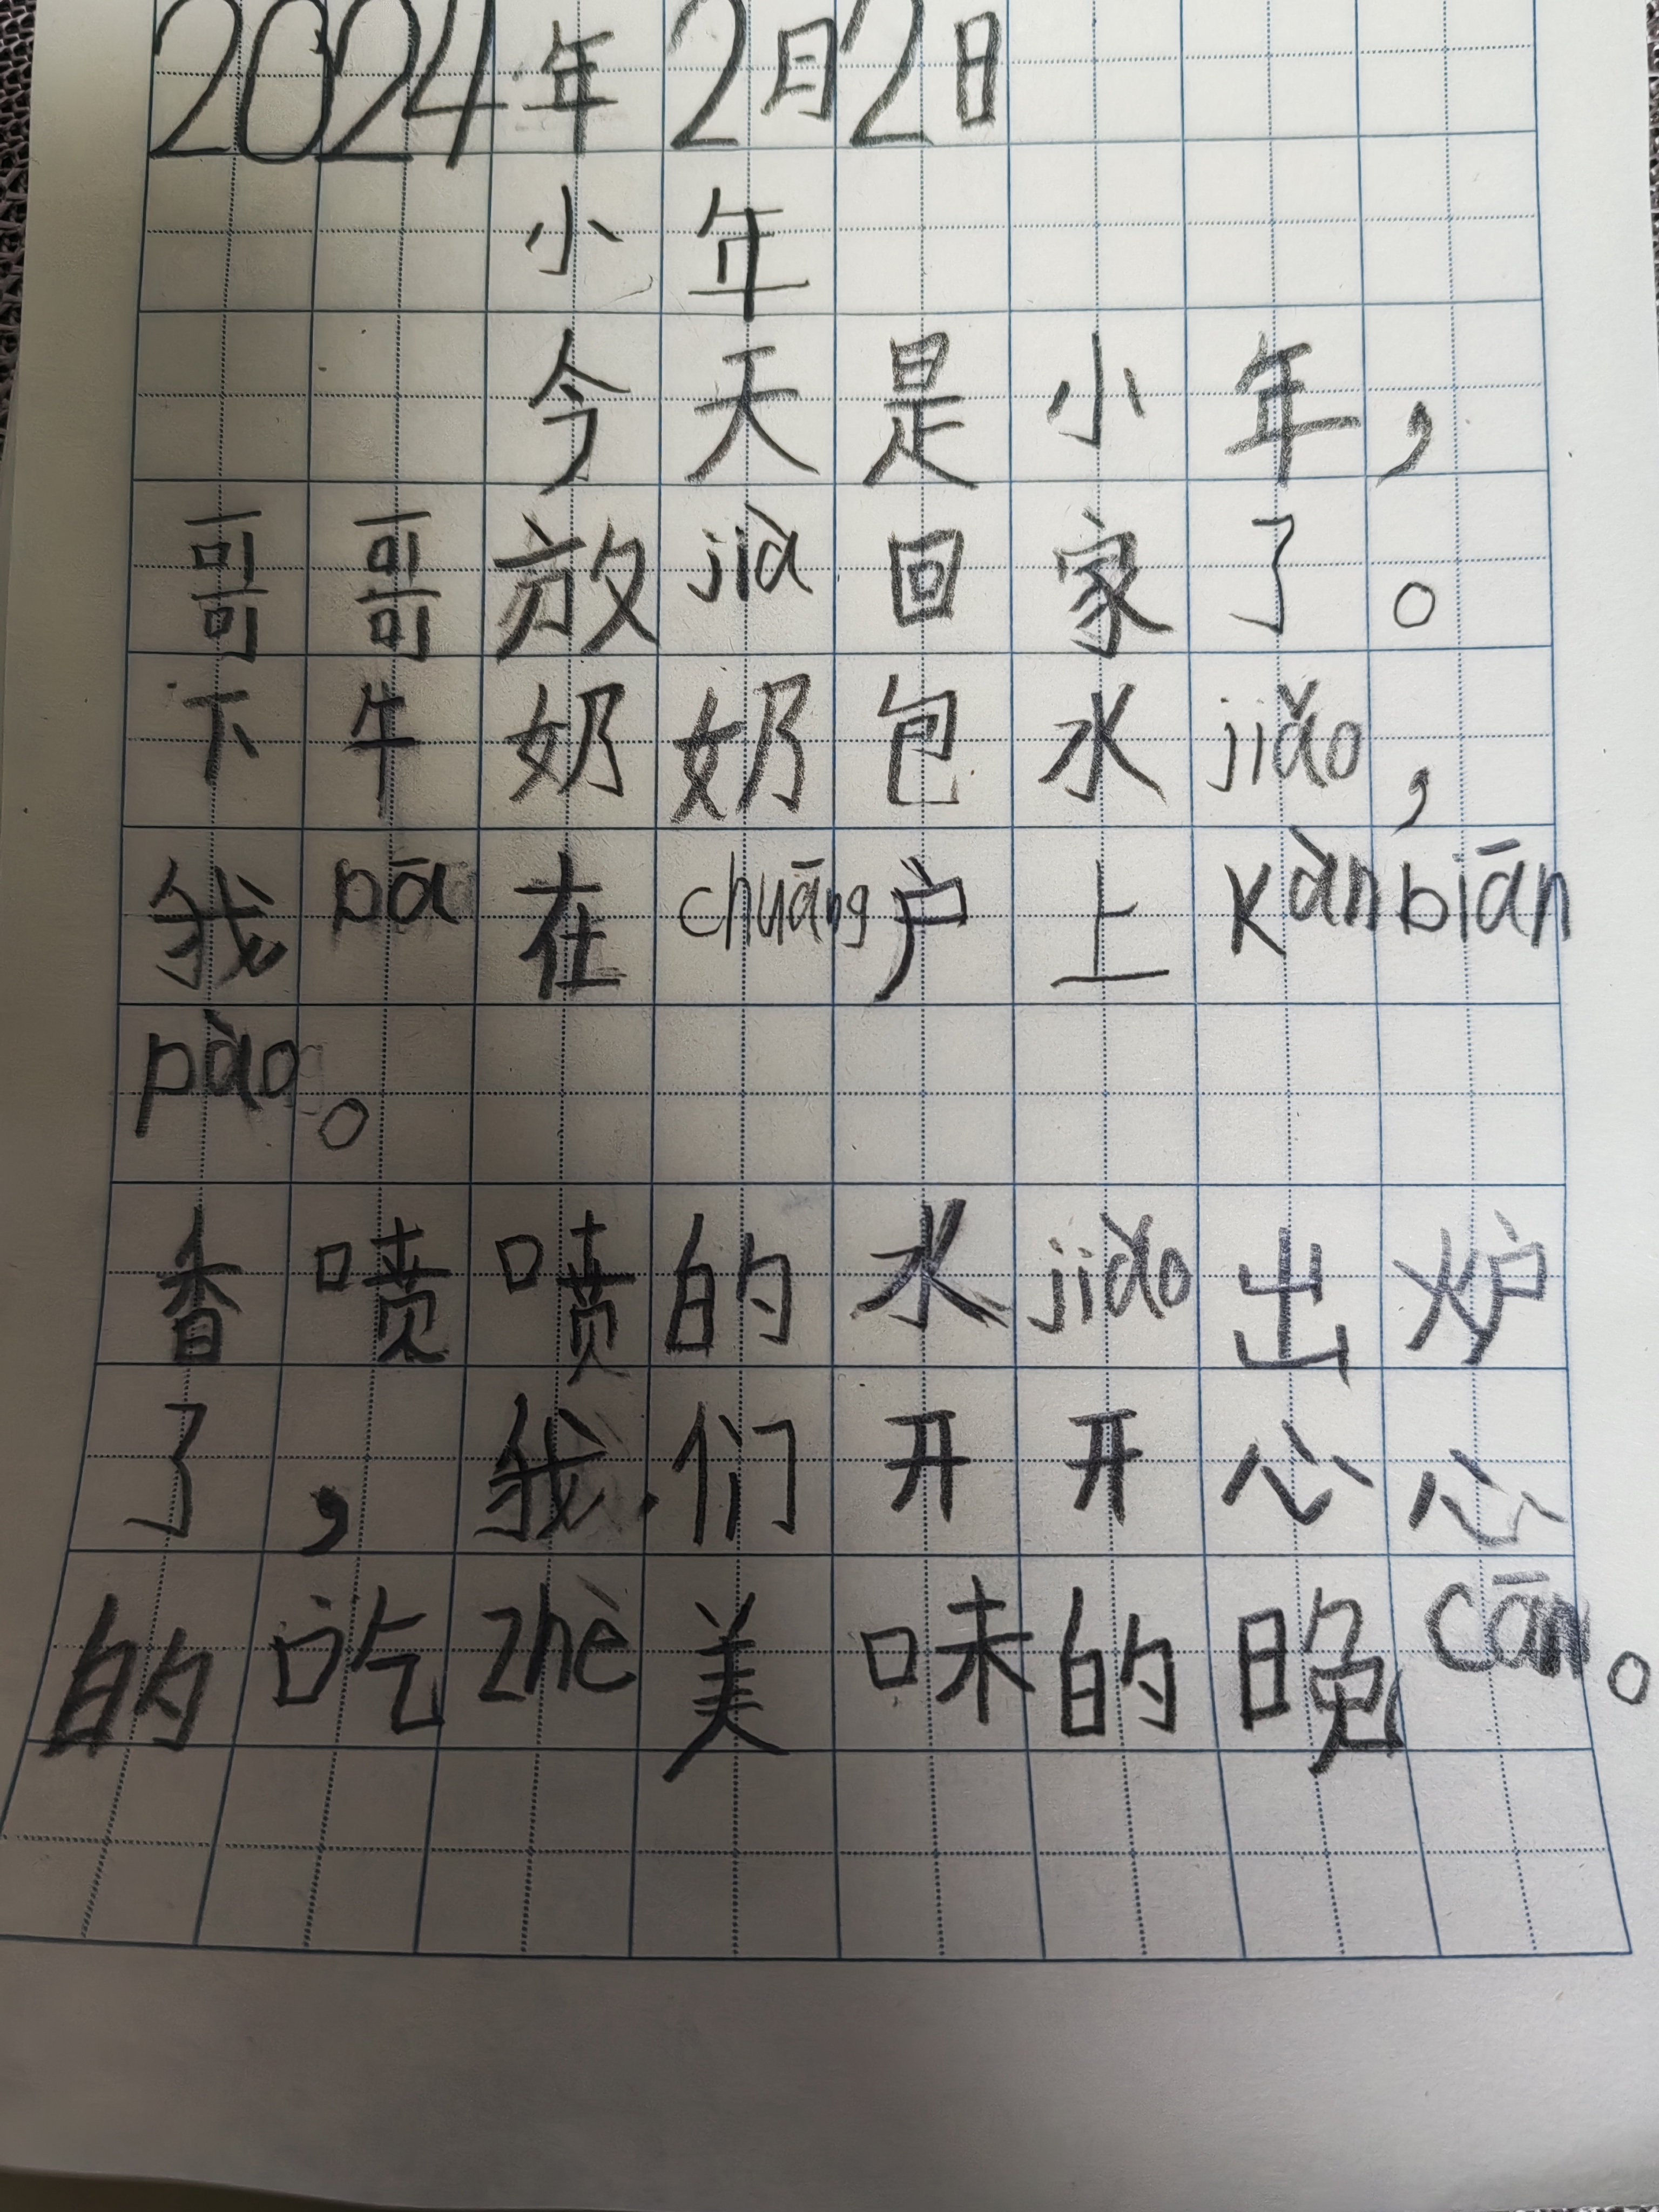 2024年2月2日
小年
今天是小年，
哥哥放jià回家了。
下午奶奶包水jiǎo，
我pā在chuāng户上kànbiān
pào。
香喷喷的水jiǎo出炉
了，我们开开心心
的吃zhè美味的晚cān。